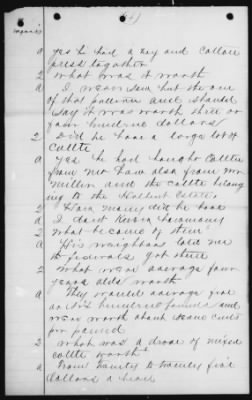 a yes he had a hay and cotton
press together
2 what was it worth
a I never saw but the one
of that pattern and should
say it was worth three or
four hundred dollars
2 Did he have a large lot of
cattle
a yes he had bought cattle
from me have also from
and the cattle belong
ing to the Estate.
2 How many did he have
a I dont know how many
2 what became of them
a His neighbors told me
the federals got them
2 what were average four
years olds worth
a They would average five
or six hundred pounds and
were worth about seven cents
per pound
2 what was a drove of mixed
cattle worth
a From twenty to twenty five
dollars a head